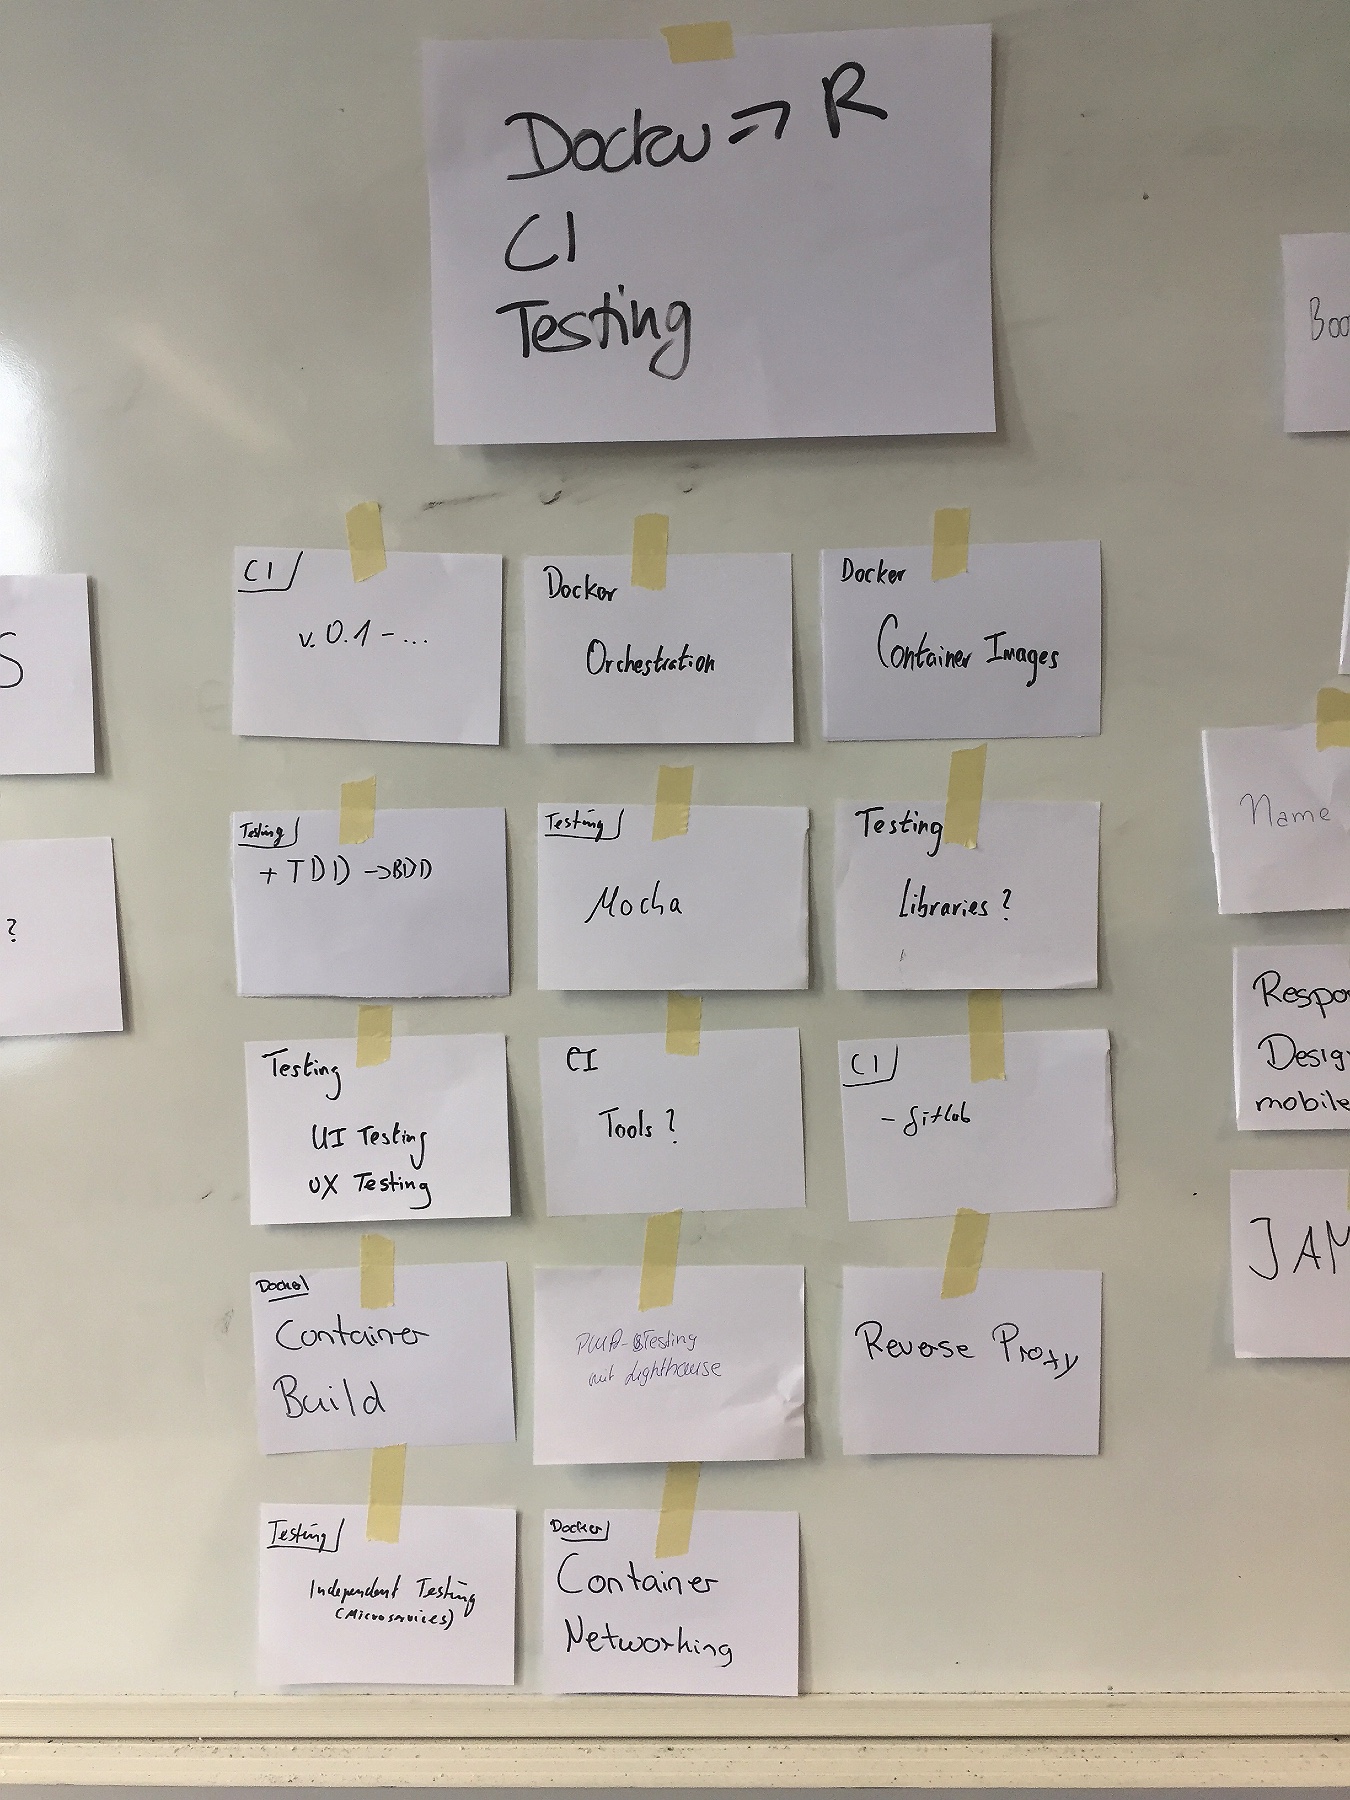 Docker => R
CI
Testing
CI
v. 0.1 - ...
Docker
Orchestration
Docker
Container Images
Testing
+ TDD -> BDD
Testing
Mocha
Testing
Libraries ?
Testing
UI Testing
UX Testing
CI
Tools ?
CI
- gitlab
Docker
Container
Build
PWA-Testing
mit Lighthouse
Reverse Proxy
Testing
Independent Testing
(Microservices)
Docker
Container
Networking
S
?
Boo
Name
Respo
Desig
mobile
JAM